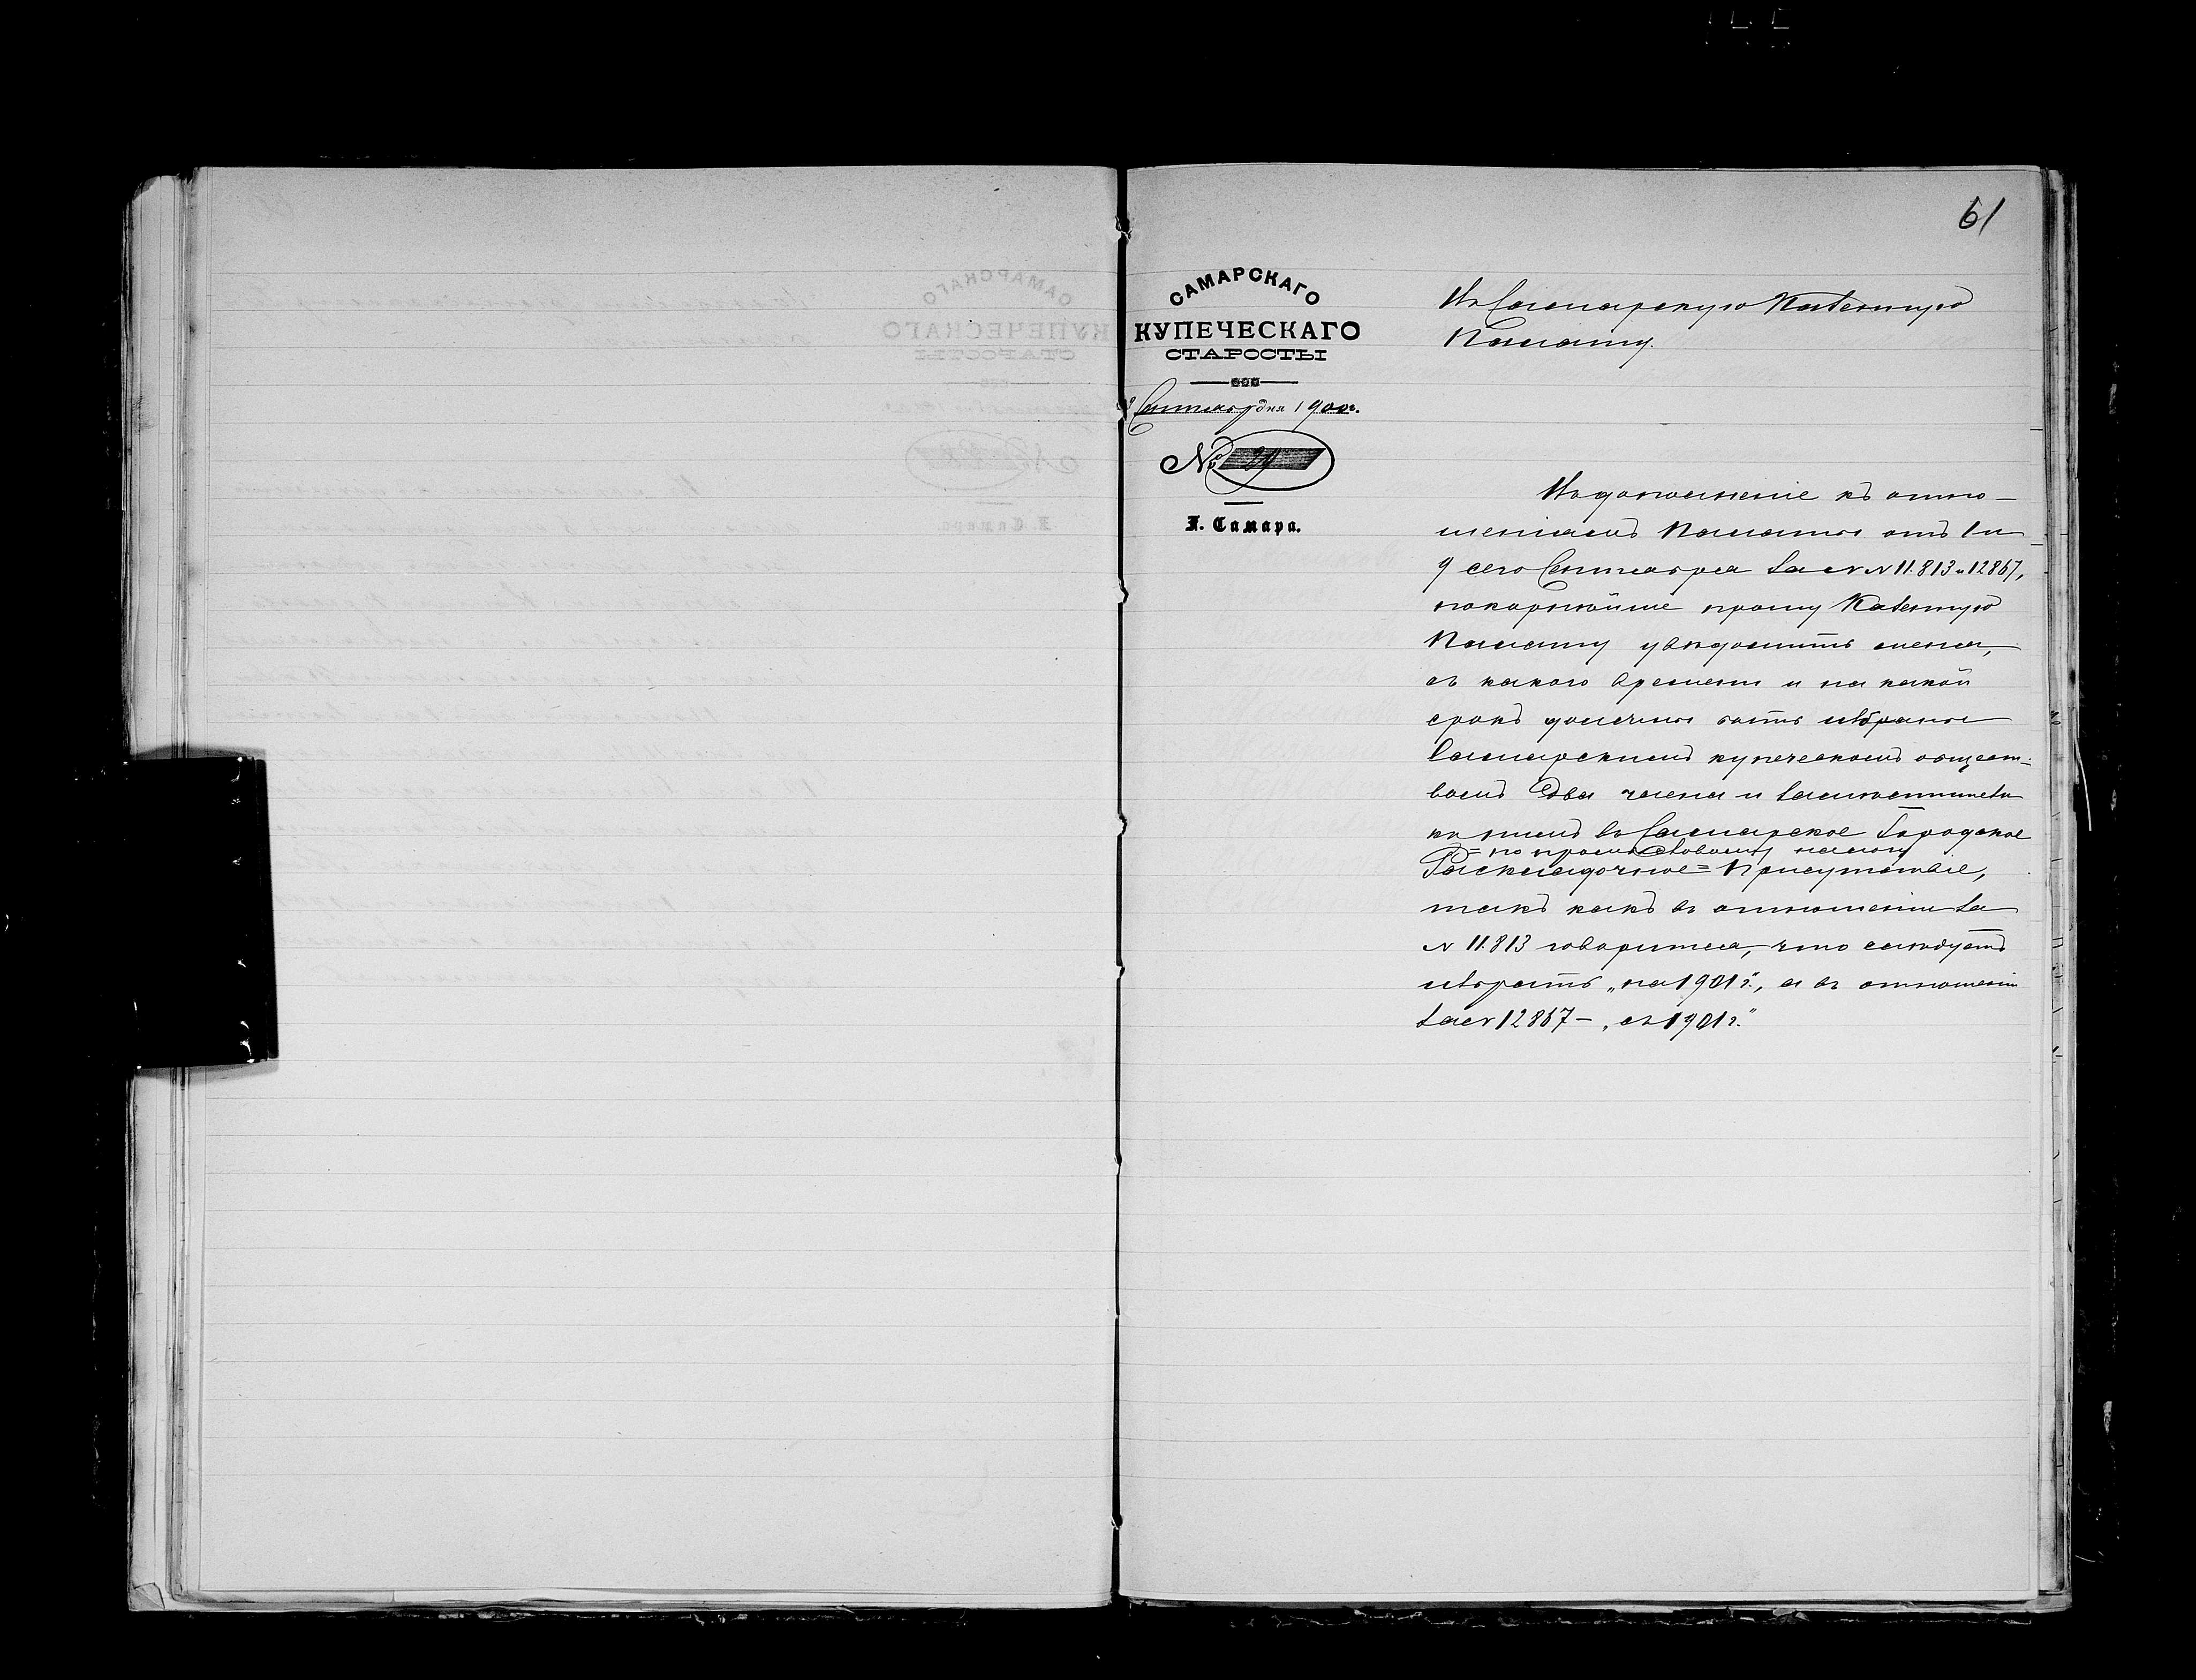 61
САМАРСКАГО
КУПЕЧЕСКАГО
СТАРОСТЫ
Сентября дня 1900 г.
№
Г. Самара.
Въ Самарскую Казенную
Палату.
Въ дополненіе къ отно-
шеніямъ Палаты отъ 1 и
9 сего Сентября за №№ 11.813 и 12867,
покорнѣйше прошу Казенную
Палату увѣдомить меня,
съ какого времени и на какой
срокъ должны быть избраны
Самарскимъ купеческимъ общест-
вомъ два члена и заместители
къ нимъ въ Самарское Городское
= по промысловому налогу
Раскладочное = Присутствіе,
такъ какъ въ отношеніи за
№ 11.813 говорится, что слѣдуетъ
избрать „на 1901 г.", а въ отношеніи
за № 12867 — „съ 1901 г."